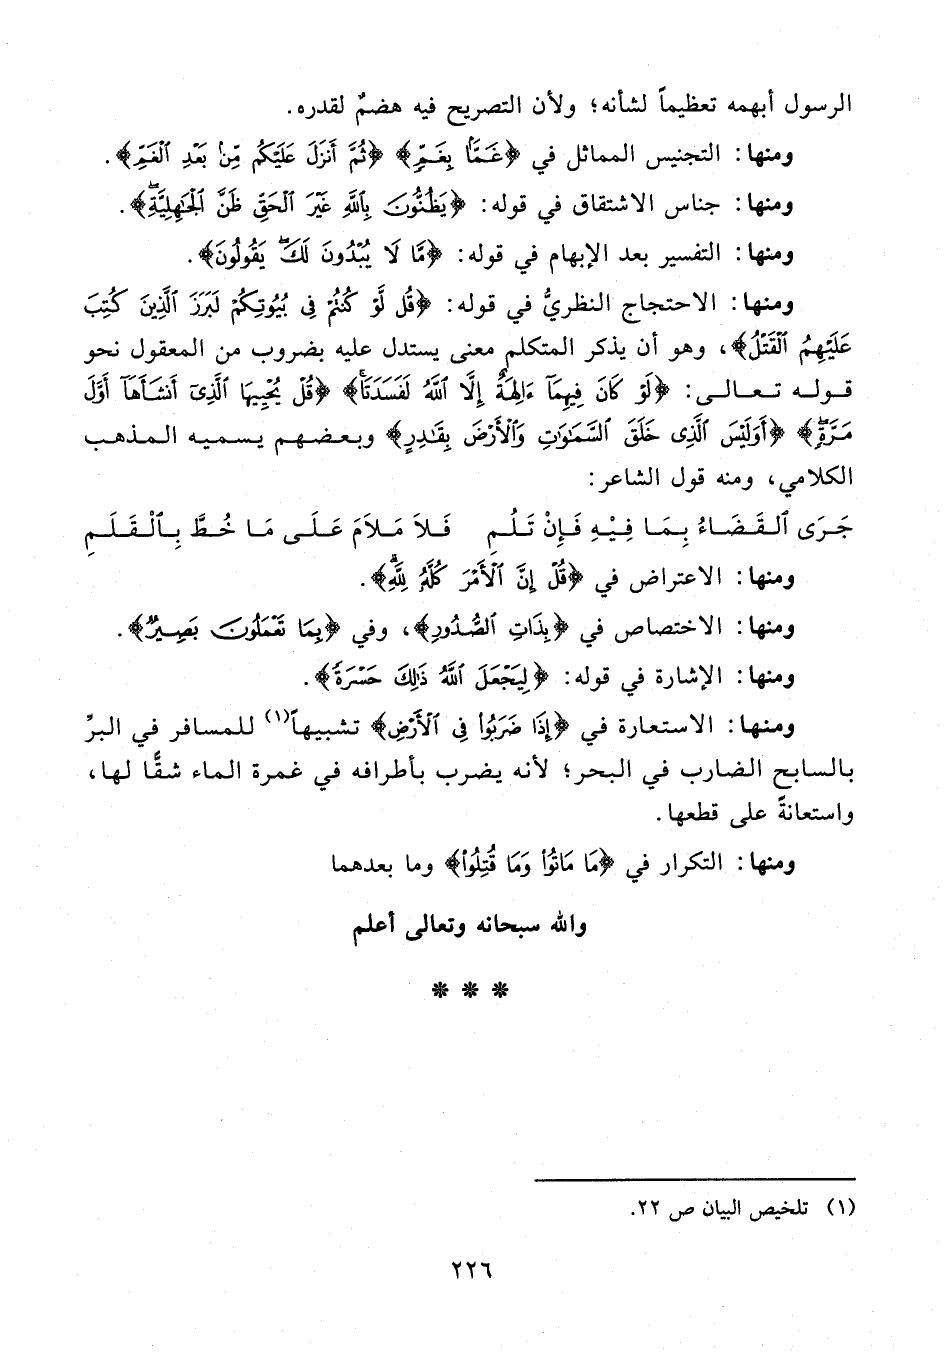 الرسول أبهمه تعظيماً لشأنه؛ ولأن التصريح فيه هضمٌ لقدره.
ومنها: التجنيس المماثل في ﴿غَمًّا بِغَمٍّ﴾ ﴿ثُمَّ أَنزَلَ عَلَيْكُم مِّنۢ بَعْدِ ٱلْغَمِّ﴾.
ومنها: جناس الاشتقاق في قوله: ﴿يَظُنُّونَ بِٱللَّهِ غَيْرَ ٱلْحَقِّ ظَنَّ ٱلْجَٰهِلِيَّةِۖ﴾.
ومنها: التفسير بعد الإبهام في قوله: ﴿مَّا لَا يُبْدُونَ لَكَۖ يَقُولُونَ﴾.
ومنها: الاحتجاج النظريُّ في قوله: ﴿قُل لَّوْ كُنتُمْ فِى بُيُوتِكُمْ لَبَرَزَ ٱلَّذِينَ كُتِبَ
عَلَيْهِمُ ٱلْقَتْلُ﴾، وهو أن يذكر المتكلم معنى يستدل عليه بضروب من المعقول نحو
قوله تعالى: ﴿لَوْ كَانَ فِيهِمَآ ءَالِهَةٌ إِلَّا ٱللَّهُ لَفَسَدَتَاۚ﴾ ﴿قُلْ يُحْيِيهَا ٱلَّذِىٓ أَنشَأَهَآ أَوَّلَ
مَرَّةٍۖ﴾ ﴿أَوَلَيْسَ ٱلَّذِى خَلَقَ ٱلسَّمَٰوَٰتِ وَٱلْأَرْضَ بِقَٰدِرٍ﴾ وبعضهم يسميه المذهب
الكلامي، ومنه قول الشاعر:
جَرَى ٱلقَضَاءُ بِمَا فِيْهِ فَإِنْ تَلُمِ فَلاَ مَلاَمَ عَلَى مَا خُطَّ بِٱلْقَلَمِ
ومنها: الاعتراض في ﴿قُلْ إِنَّ ٱلْأَمْرَ كُلَّهُۥ لِلَّهِۗ﴾.
ومنها: الاختصاص في ﴿بِذَاتِ ٱلصُّدُورِ﴾، وفي ﴿بِمَا تَعْمَلُونَ بَصِيرٌ﴾.
ومنها: الإشارة في قوله: ﴿لِيَجْعَلَ ٱللَّهُ ذَٰلِكَ حَسْرَةً﴾.
ومنها: الاستعارة في ﴿إِذَا ضَرَبُوا۟ فِى ٱلْأَرْضِ﴾ تشبيهاً(١) للمسافر في البرِّ
بالسابح الضارب في البحر؛ لأنه يضرب بأطرافه في غمرة الماء شقًّا لها،
واستعانةً على قطعها.
ومنها: التكرار في ﴿مَا مَاتُوا۟ وَمَا قُتِلُوا۟﴾ وما بعدهما
والله سبحانه وتعالى أعلم
* * *
(١) تلخيص البيان ص ٢٢.
٢٢٦